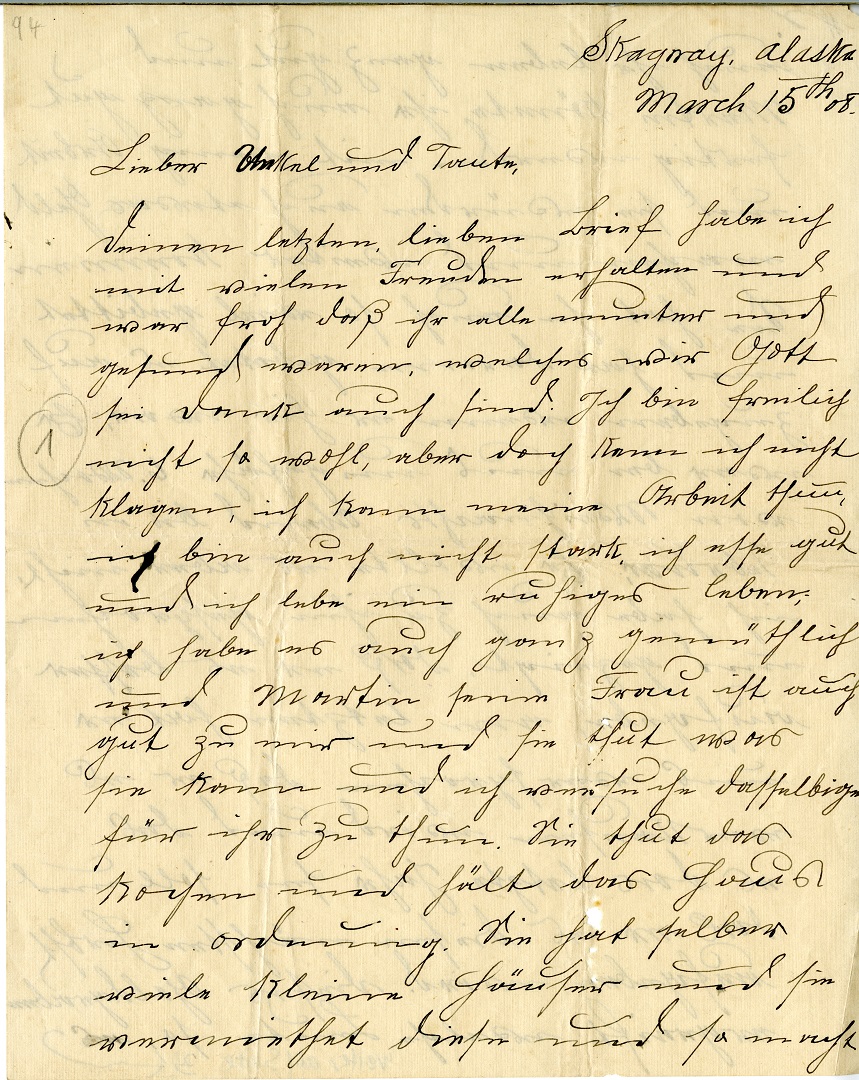 94
Skagway, Alaska
March 15th 08.
Lieber Unkel und Tante,
Deinen letzten, lieben Brief habe ich
mit vielen Freuden erhalten und
war froh daß ihr alle munter und
gesund waren, welches wir Gott
sei Dank auch sind; Ich bin freilich
nicht so wohl, aber doch kann ich nicht
klagen, ich kann meine Arbeit thun,
ich bin auch nicht stark, ich esse gut
und ich lebe ein ruhiges leben;
ich habe es auch ganz gemüthlich
und Martin seine Frau ist auch
gut zu mir und sie thut was
sie kann und ich versuche dasselbige
für ihr zu thun. Sie thut das
kochen und hält das Haus
in ordnung. Sie hat selber
viele kleine Häuser und sie
vermiethet diese und so macht
1